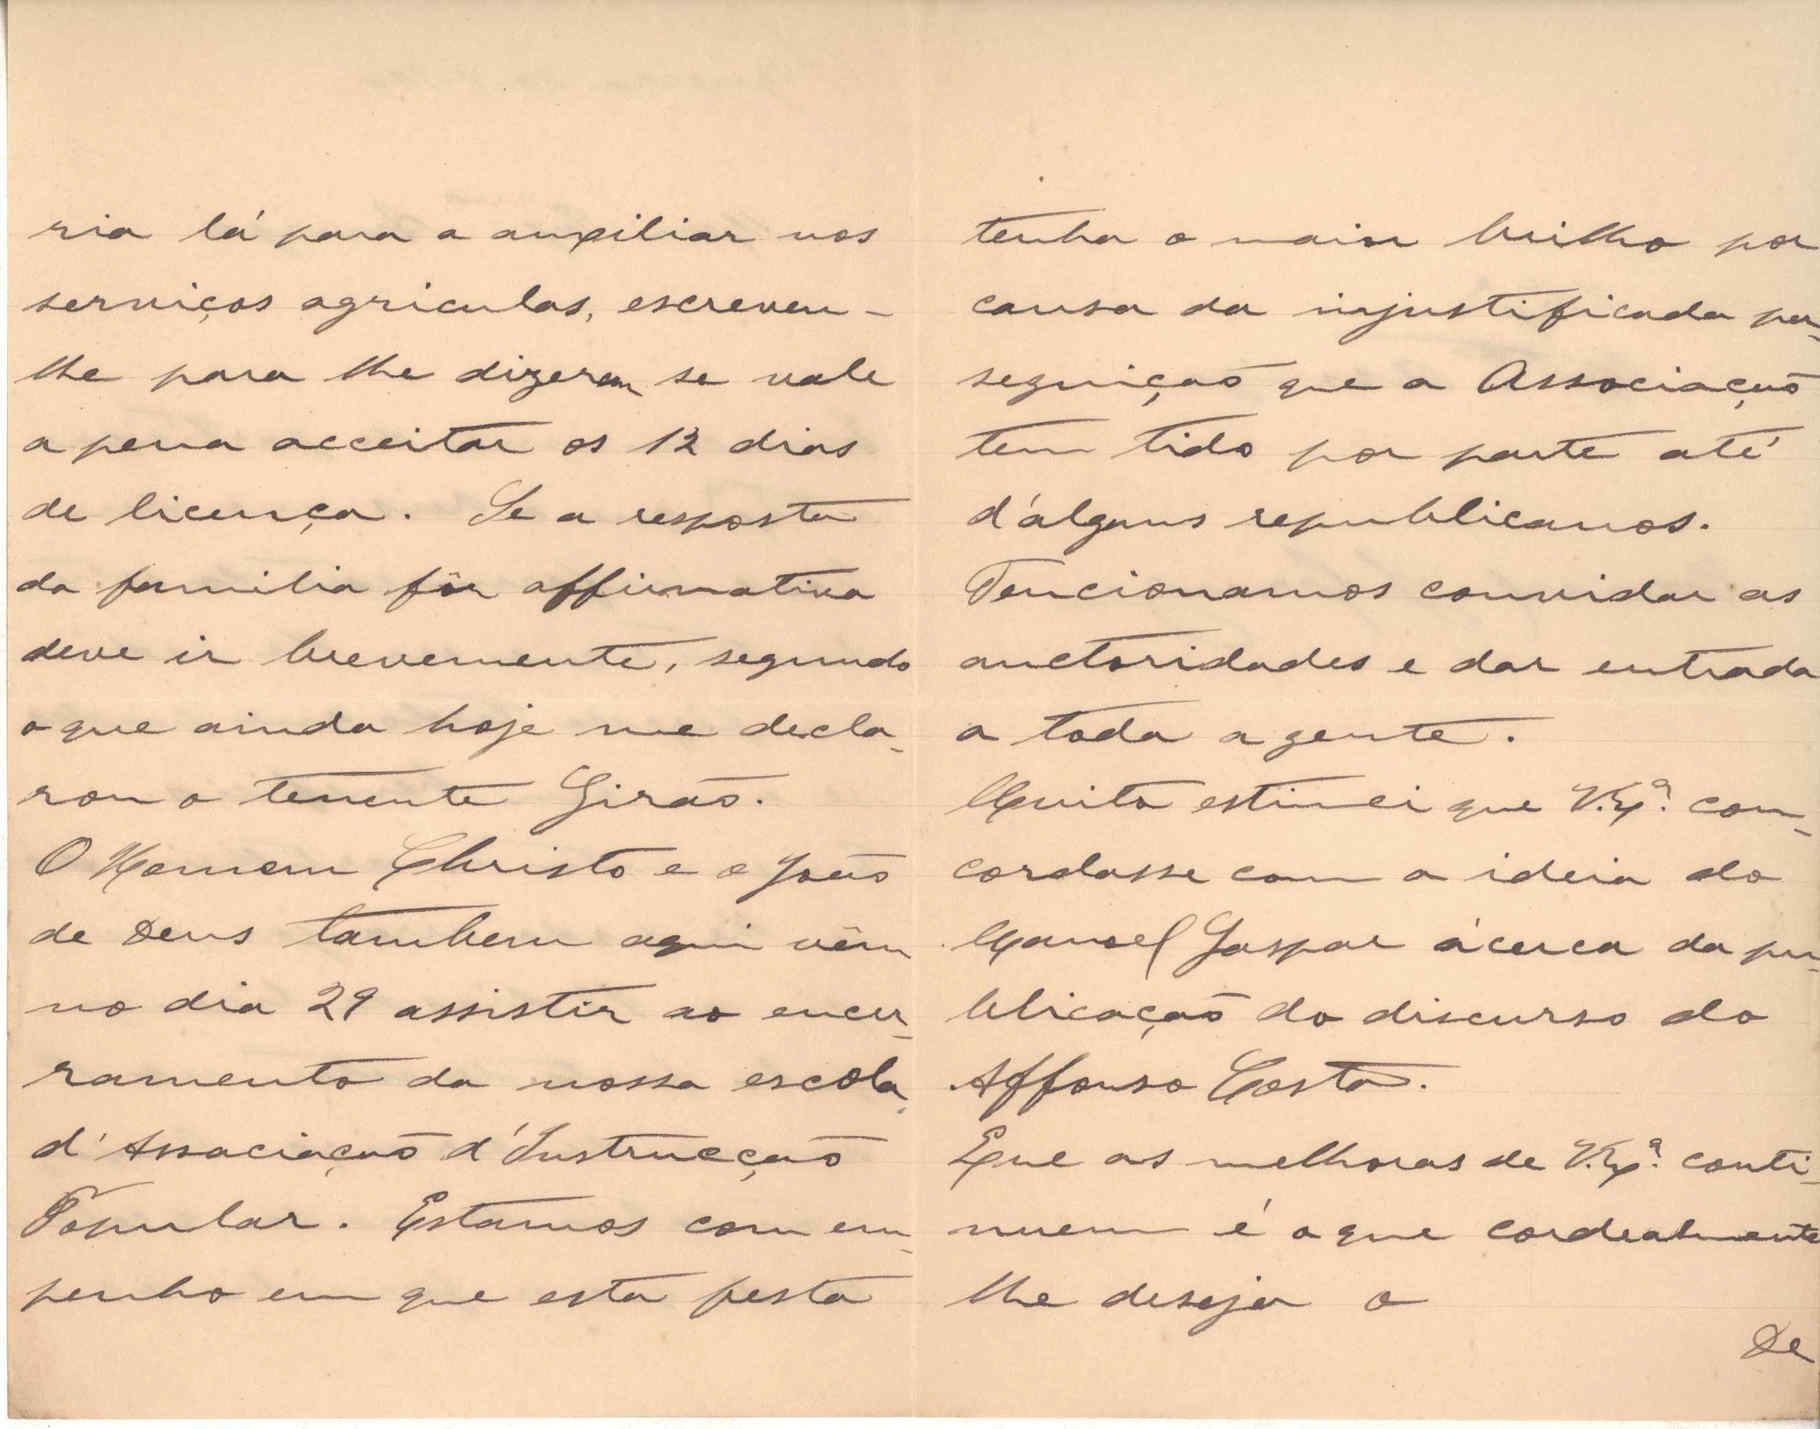 ria lá para a auxiliar nos
serviços agriculas, escreveu-
lhe para lhe dizerem se vale
a pena acceitar os 12 dias
de licença. Se a resposta
da familia fôr affirmativa
deve ir brevemente, segundo
o que ainda hoje me decla-
rou o tenente Girão.
O Homem Christo e o João
de Deus tambem aqui vêm
no dia 29 assistir ao encer-
ramento da nossa escola,
d'Associação d'Instrucção
Popular. Estamos com em-
penho em que esta festa
tenha o maior brilho por
causa da injustificada per-
seguição que a Associação
tem tido por parte até
d'alguns republicanos.
Tencionamos convidar as
auctoridades e dar entrada
a toda a gente.
Muito estimei que V. Exª. con-
cordasse com a ideia do
Manoel Gaspar ácerca da pu-
blicação do discurso do
Affonso Costa.
Que as melhoras de V. Exª. conti-
nuem é o que cordealmente
lhe deseja o
De